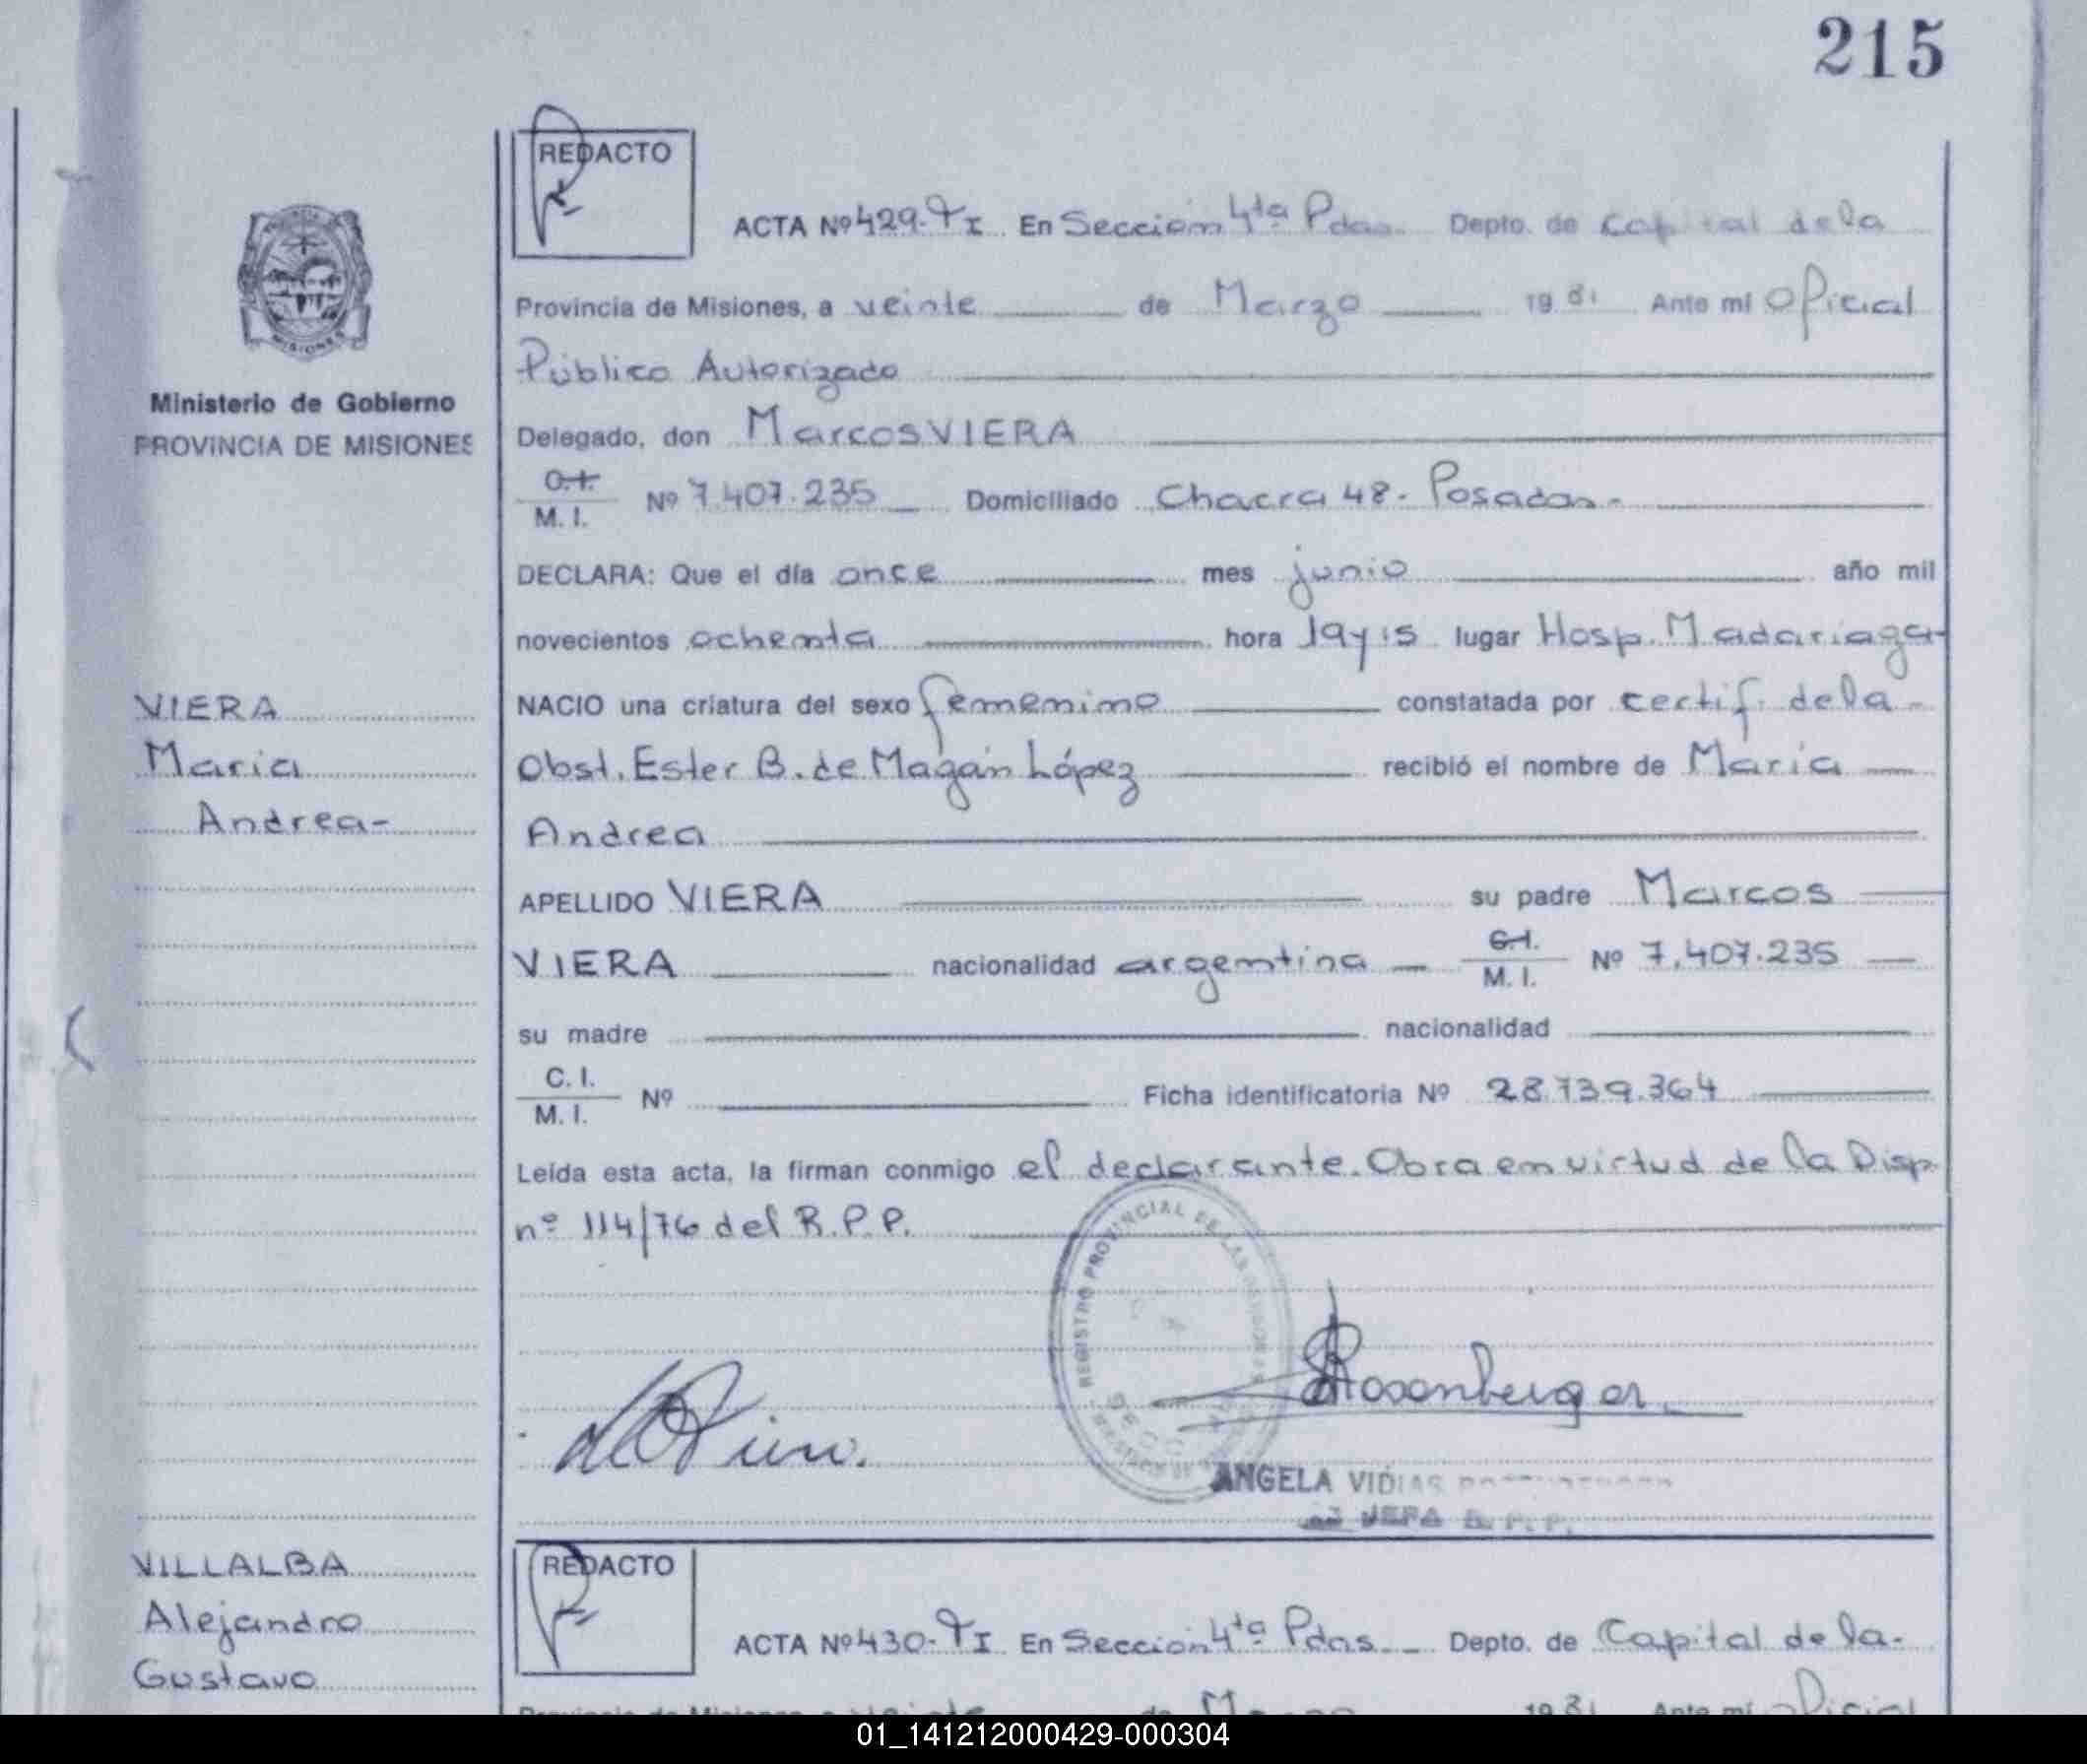 215
REDACTO
ACTA Nº 429-TI En Sección 4ta Pdas. Depto. de Capital de la
Provincia de Misiones, a veinte de Marzo 1981 Ante mí Oficial
Público Autorizado
Delegado, don Marcos VIERA
C.I.
M. I. Nº 7.407.235 Domiciliado Chacra 48-Posadas-
DECLARA: Que el día once mes junio año mil
novecientos ochenta hora 19y15 lugar Hosp. Madariaga-
NACIO una criatura del sexo femenino constatada por certif. de la
Obst. Ester B. de Magán López recibió el nombre de María
Andrea
APELLIDO VIERA su padre Marcos
VIERA nacionalidad argentina C.I.
M. I. Nº 7.407.235
su madre nacionalidad
C. I.
M. I. Nº Ficha identificatoria Nº 28.739.364
Leída esta acta, la firman conmigo el declarante. Obra en virtud de la Disp
nº 114/76 del R.P.P.
REGISTRO PROVINCIAL DE LAS
Rosenberger
ANGELA VIDIAS
JEFA R. P. P.
Ministerio de Gobierno
PROVINCIA DE MISIONES
MISIONES
VIERA
María
Andrea-
VILLALBA
Alejandro
Gustavo
REDACTO
ACTA Nº 430-TI En Sección 4ta Pdas. Depto. de Capital de la-
Provincia de Misiones a veinte de Marzo 1981 Ante mí Oficial
01_141212000429-000304